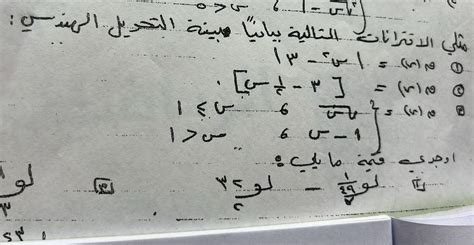 ، س < ٥
مثلي الاقترانات التالية بيانياً مبينة التحويل الهندسي :
① ق(س) = | س² - ٣ |
② ق(س) = [ ٣ - ½ س ]
③ ق(س) = { √س ، س ≥ ١
١ - س ، س < ١
اوجدي قيمة ما يلي :
① لو٧ ١/٤٩ - لو٢ ٣٢
لو ٣